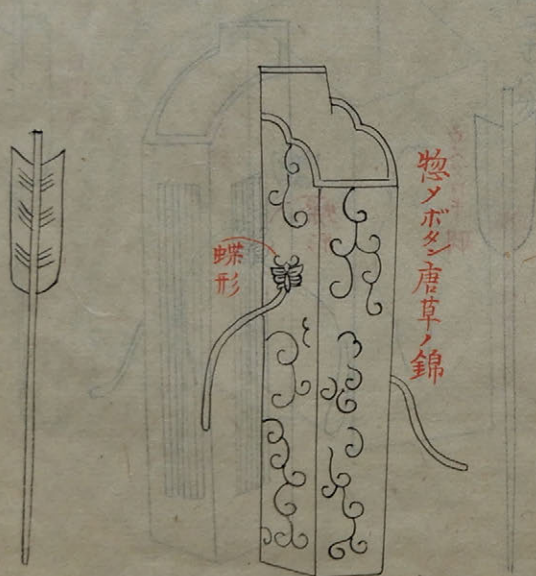 惣〆ボタン唐草ノ錦
蝶形